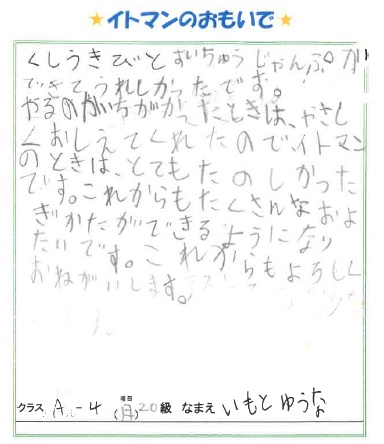 イトマンのおもいで
くしうきびとすいちゅうじゃんぷが
できてうれしかったです。
やるのがちががったときは、やさし
くおしえてくれたので、イトマン
のときは、とてもたのしかった
です。これからもたくさんなおよ
ぎかたができるようになり
たいです。これからもよろしく
おねがいします。
クラス A-4 曜日(月) 20級 なまえ いもと ゆうな